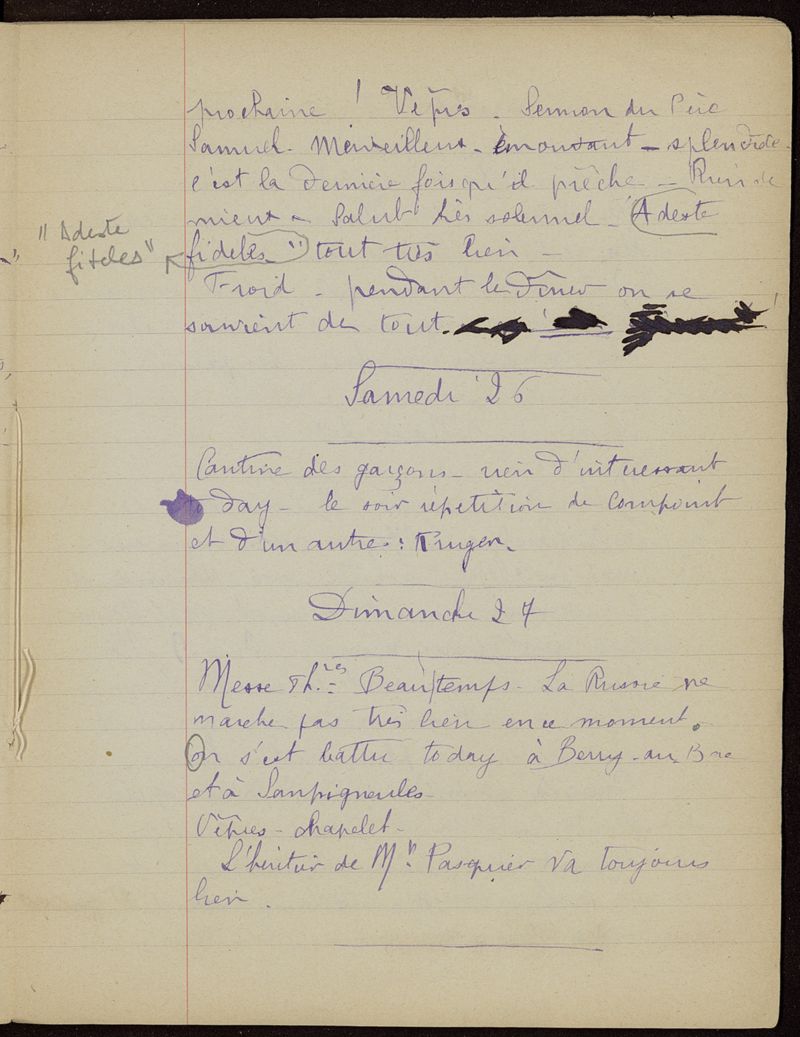 prochaine ! Vêpres - Sermon du Père
Samuel - Merveilleux - émouvant - splendide -
c'est la dernière fois qu'il prêche - Rien de
mieux - Salut très solennel - "Adeste
"Adeste
fideles"
fideles" tout très bien -
Froid - pendant le dîner on se
souvient de tout.
Samedi 26
Cantine des garçons - rien d'interessant
to day - le soir répetition de Compoint
et d'un autre :
Dimanche 27
Messe Th.res Beau temps - La Russie ne
marche pas très bien en ce moment.
On s'est battu today à Berry-au-Bac
et à Sapigneules
Vêpres - chapelet -
L'héritier de Mr Pasquier va toujours
bien.